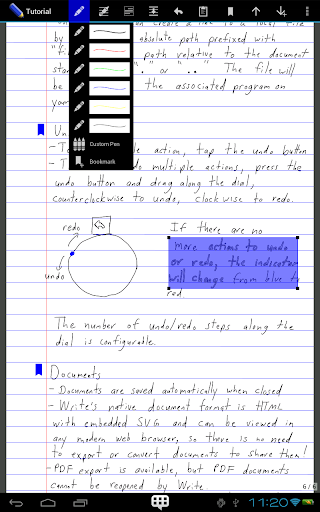 Tutorial
Custom Pen
Bookmark
create a link to a local file
by absolute path prefixed with
path relative to the document
" or ".. " The file will
be the associated program on
your
Un
- To action, tap the undo button
- T do multiple actions, press the
undo button and drag along the dial,
counterclockwise to undo, clockwise to redo.
redo
undo
If there are no
more actions to undo
or redo, the indicator
will change from blue to
red.
The number of undo/redo steps along the
dial is configurable.
Documents
- Documents are saved automatically when closed
- Write's native document format is HTML
with embedded SVG and can be viewed in
any modern web browser, so there is no need
to export or convert documents to share them!
- PDF export is available, but PDF documents
cannot be reopened by Write
6/6
11:20